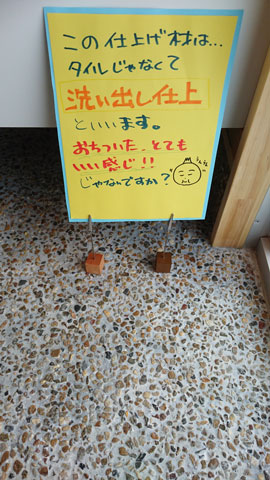 この仕上げ材は…
タイルじゃなくて
洗い出し仕上
といいます。
おちついた、とても
いい感じ!!
じゃないですか?